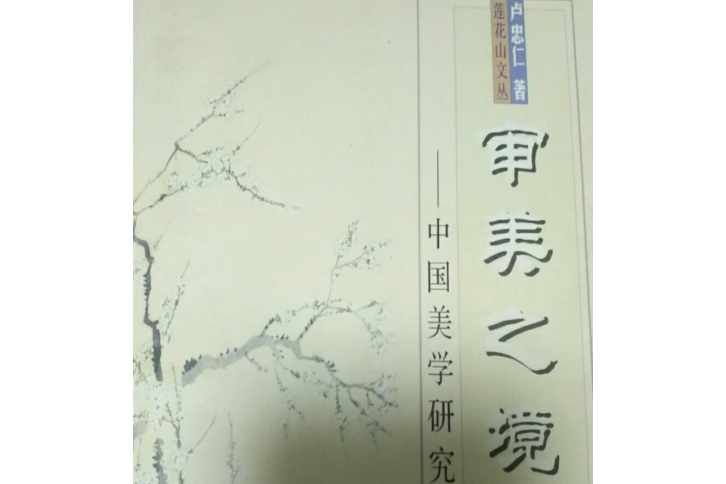 卢忠仁 著
莲花山文丛
审美之境
——中国美学研究